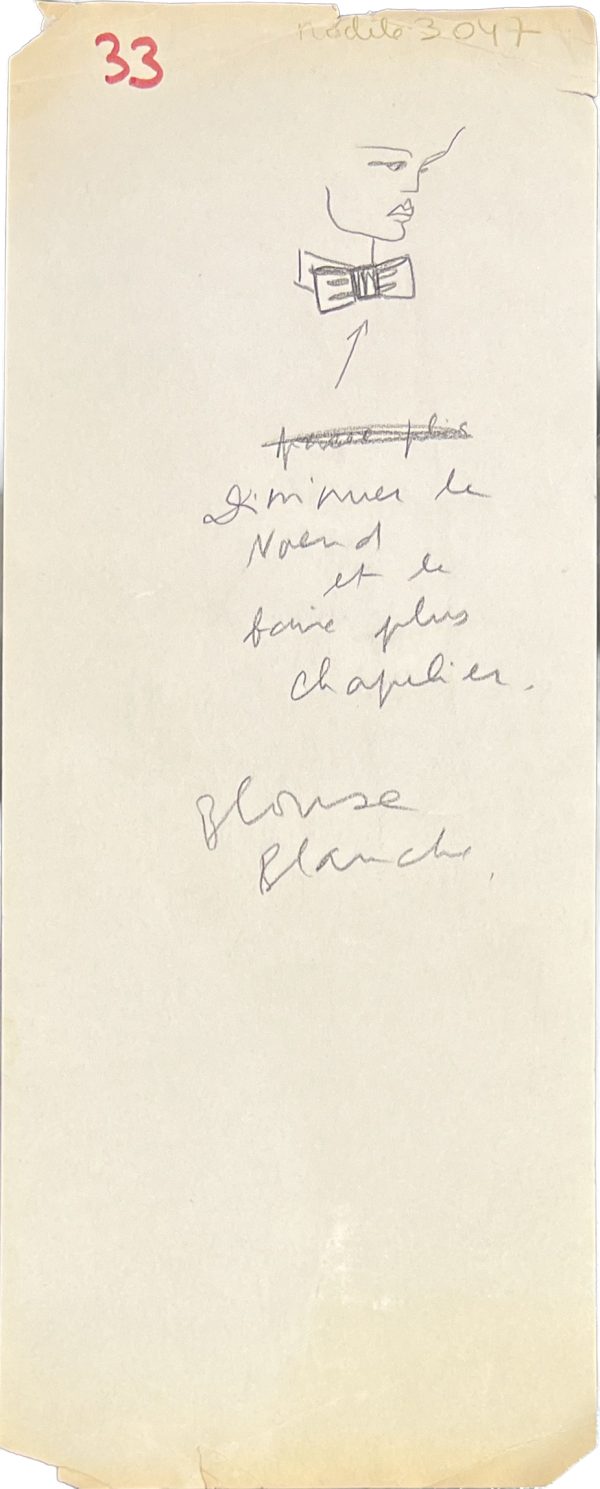 33
modèle 3047
plis
Diminuer le
Noeud
et le
faire plus
chapelier.
Blouse
Blanche.